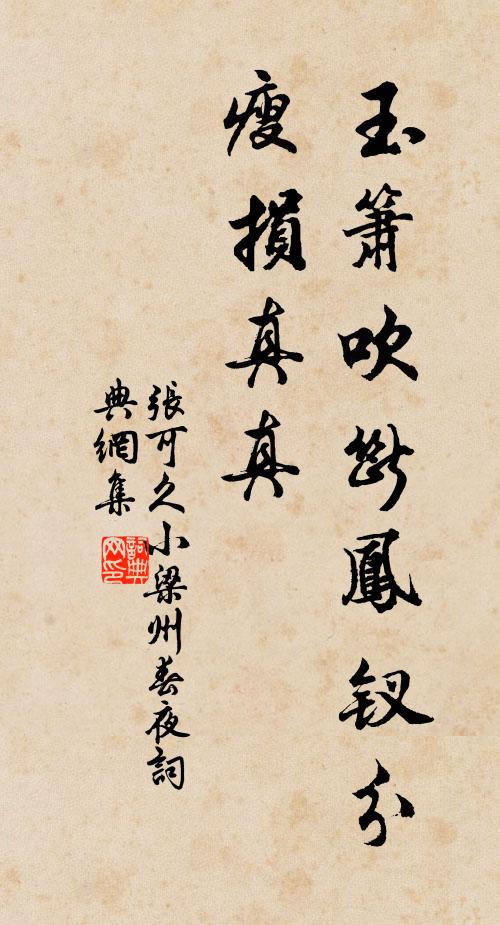 玉簫吹斷鳳釵分
瘦損真真
張可久小梁州春夜詞
典網集
詞典網印